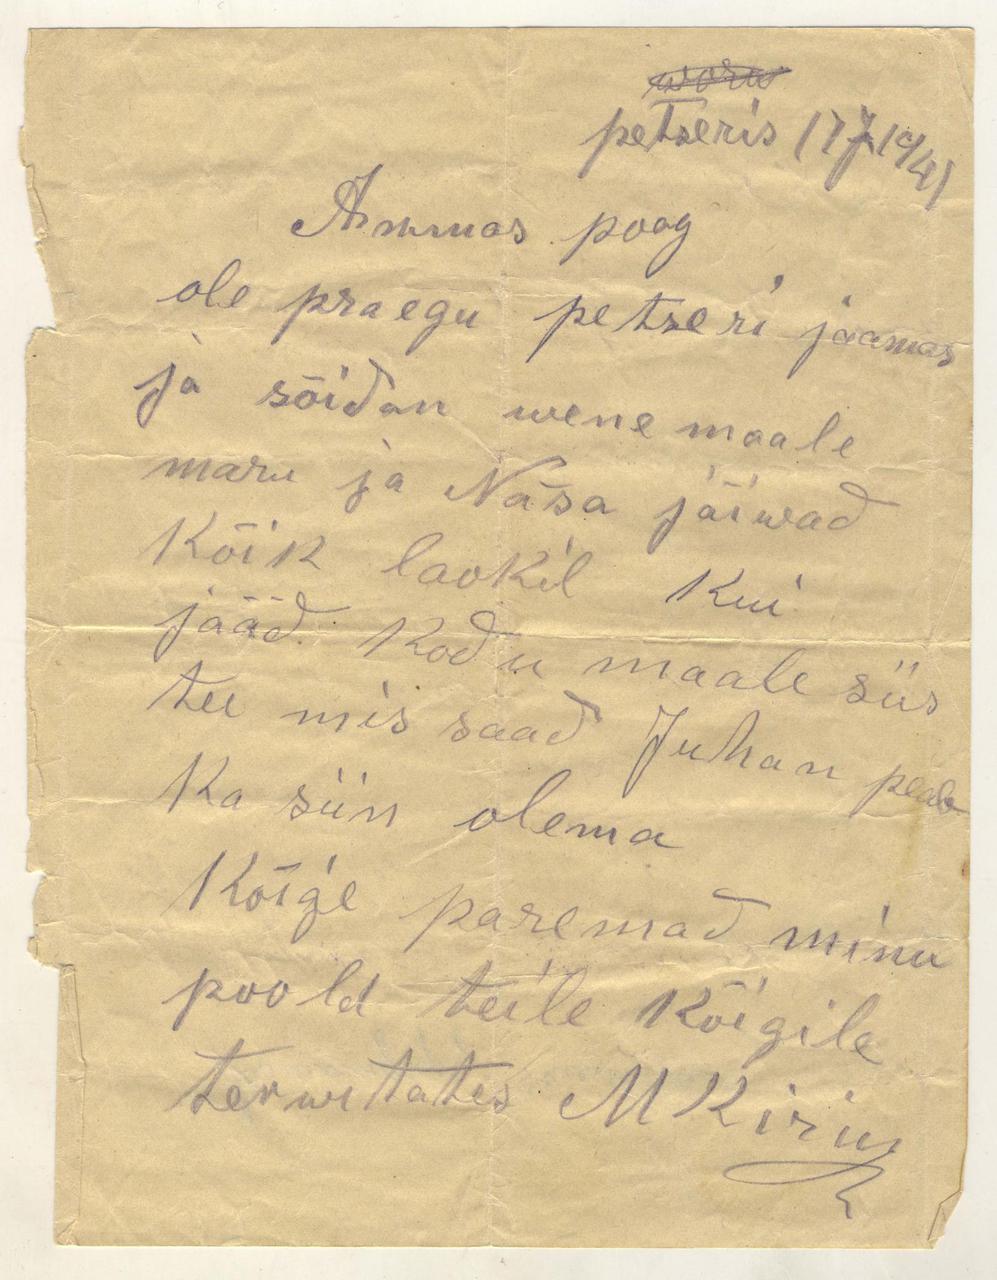 woru
petseris 17 7 1941
Armas poog
ole praegu petseri jaamas
ja sõidan wene maale
maru ja Näsa jäiwad
Kõik laokil Kui
jääd Kodu maale siis
tee mis saad Juhan peab
Ka siin olema
Kõige paremad minu
poold teile Kõigile
terwitates M Kirius